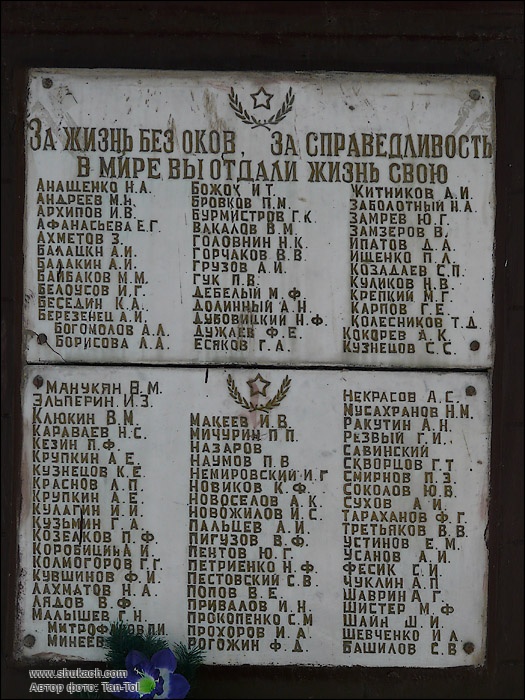 ЗА ЖИЗНЬ БЕЗ ОКОВ, ЗА СПРАВЕДЛИВОСТЬ
В МИРЕ ВЫ ОТДАЛИ ЖИЗНЬ СВОЮ
АНАЩЕНКО Н.А.
АНДРЕЕВ М.Н.
АРХИПОВ И.В.
АФАНАСЬЕВА Е.Г.
АХМЕТОВ З.
БАЛАЦКИ А.И.
БАЛАКИН А.И.
БАЙБАКОВ М.М.
БЕЛОУСОВ И.Г.
БЕСЕДИН К.А.
БЕРЕЗЕНЕЦ А.И.
БОГОМОЛОВ А.Л.
БОРИСОВА Л.А.
БОЖОК И.Т.
БРОВКОВ П.М.
БУРМИСТРОВ Г.К.
ВАКАЛОВ В.М.
ГОЛОВНИН Н.К.
ГОРЧАКОВ В.В.
ГРУЗОВ А.И.
ГУК П.В.
ДЕБЕЛЫЙ М.Ф.
ДОЛИННЫЙ А.Н.
ДУБОВИЦКИЙ Н.Ф.
ДУЖЛЕВ Ф.Е.
ЕСЯКОВ Г.А.
ЖИТНИКОВ А.И.
ЗАБОЛОТНЫЙ Н.А.
ЗАМРЕВ Ю.Г.
ЗАМЗЕРОВ В.
ИПАТОВ Д.А.
ИЩЕНКО П.Л.
КОЗАДАЕВ С.П.
КУЛИКОВ Н.В.
КРЕПКИЙ М.Г.
КАРПОВ Г.Е.
КОЛЕСНИКОВ Т.Д.
КОКОРЕВ А.К.
КУЗНЕЦОВ С.С.
МАНУКЯН В.М.
ЭЛЬПЕРИН И.З.
КЛЮКИН В.М.
КАРАВАЕВ Н.С.
КЕЗИН П.Ф.
КРУПКИН А.Е.
КУЗНЕЦОВ К.Е.
КРАСНОВ Л.П.
КРУПКИН А.Е.
КУЛАГИН И.И.
КУЗЬМИН Г.А.
КОЗЕЛКОВ П.Ф.
КОРОБИЦЫН А.И.
КОЛМОГОРОВ Г.Г.
КУВШИНОВ Ф.И.
ЛАХМАТОВ Н.А.
ЛЯДОВ В.Ф.
МАЛЫШЕВ Г.Н.
МИТРОФАНОВ П.И.
МИНЕЕВ
МАКЕЕВ И.В.
МИЧУРИН П.П.
НАЗАРОВ
НАУМОВ П.В.
НЕМИРОВСКИЙ И.Г.
НОВИКОВ К.Ф.
НОВОСЕЛОВ А.К.
НОВОЖИЛОВ И.С.
ПАЛЬЦЕВ А.И.
ПИГУЗОВ В.Ф.
ПЕНТОВ Ю.Г.
ПЕТРИЕНКО Н.Ф.
ПЕСТОВСКИЙ С.В.
ПОПОВ В.Е.
ПРИВАЛОВ И.Н.
ПРОКОПЕНКО С.М.
ПРОХОРОВ И.А.
РОГОЖИН Ф.Д.
НЕКРАСОВ А.С.
МУСАХРАНОВ Н.М.
РАКУТИН А.Н.
РЕЗВЫЙ Г.И.
САВИНСКИЙ
СКВОРЦОВ Г.Т.
СМИРНОВ П.З.
СОКОЛОВ Ю.В.
СУХОВ А.И.
ТАРАХАНОВ Ф.Г.
ТРЕТЬЯКОВ В.В.
УСТИНОВ Е.М.
УСАНОВ А.И.
ФЕСИК С.И.
ЧУКЛИН А.П.
ШАВРИН А.Г.
ШИСТЕР М.Ф.
ШАЙН Ш.И.
ШЕВЧЕНКО И.Л.
БАШИЛОВ С.В.
www.shukach.com
Автор фото: Tan-Tol